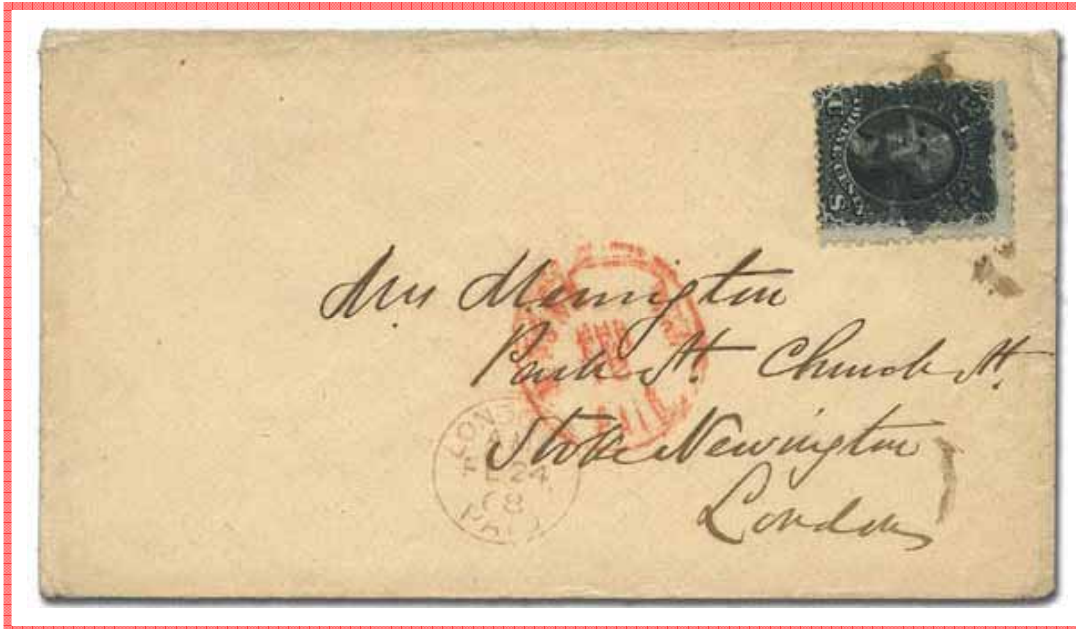 U S
Mrs Merrington
Park St. Church St.
Stoke Newington
London
LONDON
24
68
PAID